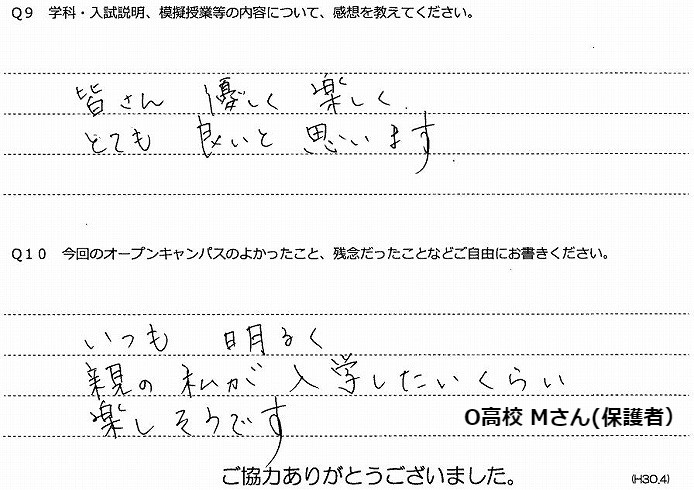 Q9 学科・入試説明、模擬授業等の内容について、感想を教えてください。
皆さん 優しく 楽しく
とても 良いと 思います
Q10 今回のオープンキャンパスのよかったこと、残念だったことなどご自由にお書きください。
いつも 明るく
親の 私が 入学したいくらい
楽しそうです
O高校 Mさん(保護者)
ご協力ありがとうございました。
(H30.4)